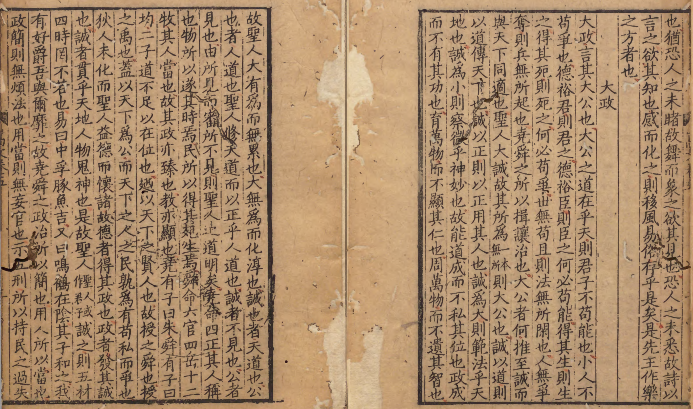 也猶恐人之未睹故舞而象之欲其見也恐人之未悉故詩以
言之欲其知也感而化之則移風易俗存乎是矣是先王作樂
之方者也
大政
大政言其大公也大公之道在乎天則君子不苟能也小人不
苟爭也德裕君則君之德裕臣則臣之何必苟能得其生則生
之得其死則死之何必苟爭世無苟且則法無所閑也人無爭
奪則兵無所起也堯舜之所以揖讓治也大公者何推至誠而
與天下同適也聖人大誠故其所為無所則大公也誠以道則
以道傳天下也誠以正則以正用其人也誠為大則範法乎天
地也誠為小則察微乎神妙也故能道成而不私其位也政成
而不有其功也育萬物而不顯其仁也周萬物而不遺其智也
故聖人大有為而無累也大無為而化淳也誠也者天道也公
也者人道也聖人修天道而以正乎人道也誠者不見也公者
見也由所見而審所不見則聖人之道明矣堯命四正其人稱
也物所以遂其時焉民所以得其死生焉舜命六官四岳十二
牧其人當也故其政亦臻也教亦顯也堯有子曰朱舜有子曰
均二子道不足以在位也遂以天下之賢人也故授之舜也授
之禹也蓋以天下為公而天下之人之民孰為有苟私而爭也
狄人未化而聖人益德而懷諸故德者得其政也政者發其誠
也誠者貫乎天地人物鬼神也是故聖人誠之則五材
四時罔不若也易曰中孚豚魚吉又曰鳴鶴在陰其子和之我
有好爵吾與爾靡之故堯舜之政治所以簡也用人所以當也
政簡則無煩法也用當則無妄官也示五刑所以持民之過失